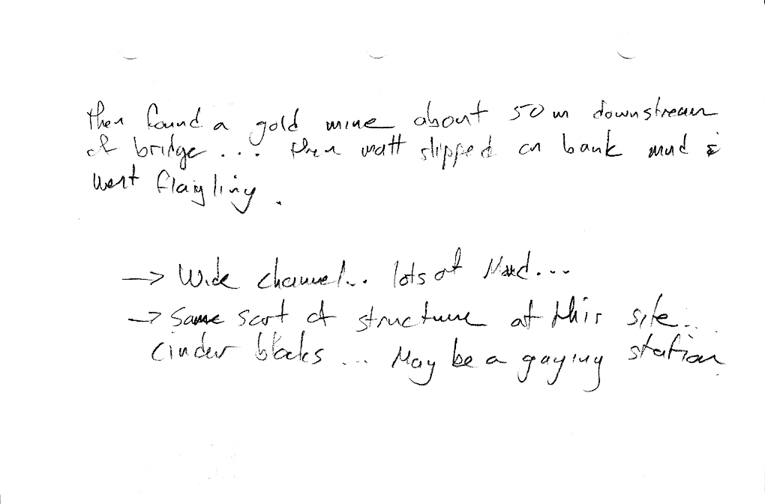 then found a gold mine about 50 m downstream
of bridge... then matt slipped on bank mud &
went flaigling.
→ Wide channel... lots of Mud...
→ Same sort of structure at this site...
cinder blocks... May be a gaying station